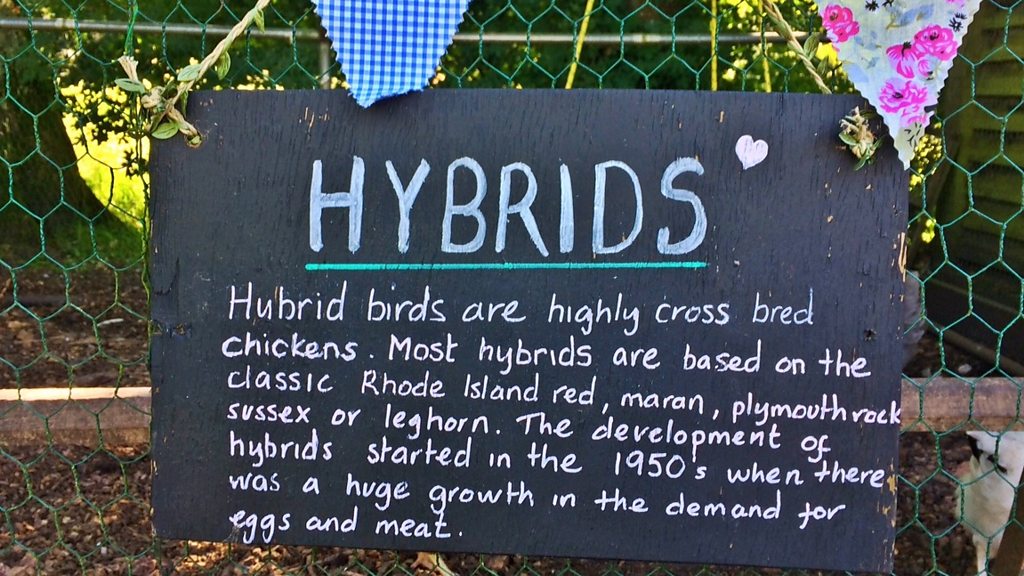 HYBRIDS
Hubrid birds are highly cross bred
chickens. Most hybrids are based on the
classic Rhode Island red, maran, plymouth rock
sussex or leghorn. The development of
hybrids started in the 1950's when there
was a huge growth in the demand for
eggs and meat.